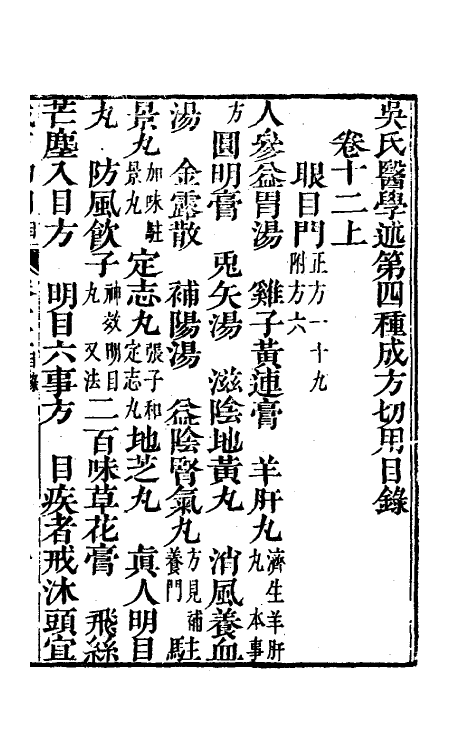 吳氏醫學述第四種成方切用目錄
卷十二上
眼目門正方一十九附方六
人參益胃湯　雞子黃連膏　羊肝丸濟生羊肝丸　本事
方圓明膏　兎矢湯　滋陰地黃丸　消風養血
湯　金露散　補陽湯　益陰腎氣丸方見補養門　駐
景丸加味駐景丸　定志丸張子和定志丸　地芝丸　眞人明目
丸　防風飲子神效明目丸　又法　二百味草花膏　飛絲
芒塵入目方　明目六事方　目疾者戒沐頭宜